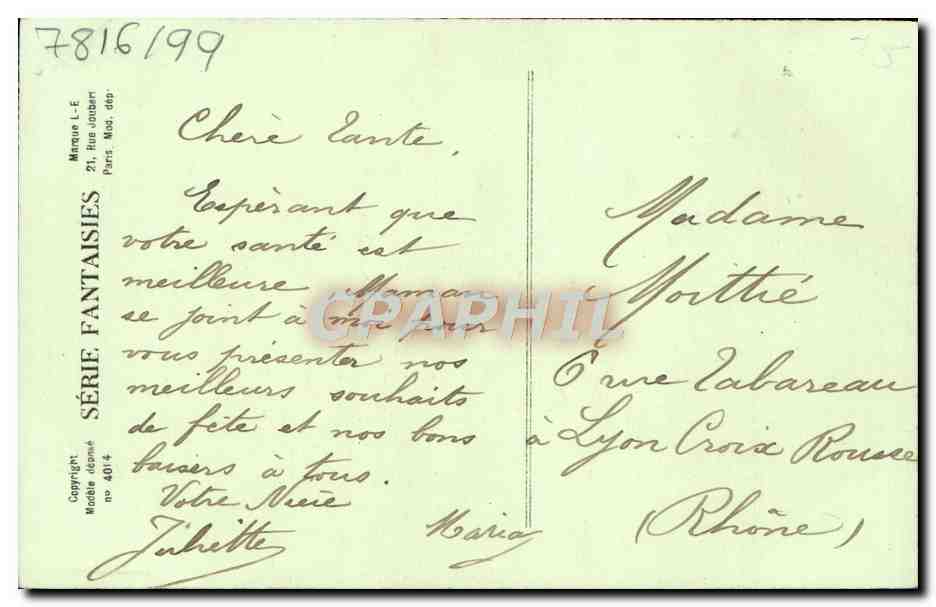 7816/99
Marque L-E
21, Rue Joubert
Paris. Mod. dép.
SÉRIE FANTAISIES
Copyright
Modèle déposé
nº 4014
Chère Tante,
Espèrant que
votre santé est
meilleure Maman
se joint à moi pour
vous présenter nos
meilleurs souhaits
de fête et nos bons
baisers à tous.
Votre Nièce
Juliette Maria
Madame
Moittié
6 rue Tabareau
à Lyon Croix Rousse
(Rhône)
CPAPHIL